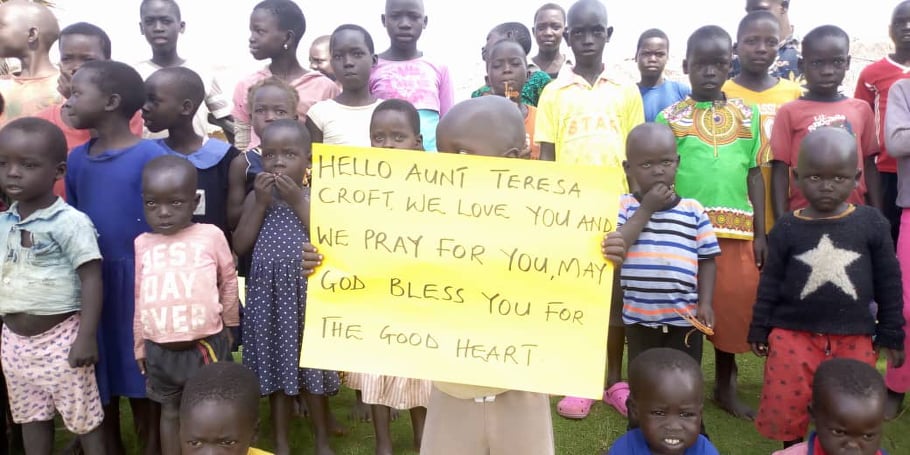 HELLO AUNT TERESA
CROFT, WE LOVE YOU AND
WE PRAY FOR YOU, MAY
GOD BLESS YOU FOR
THE GOOD HEART.
BEST
DAY
EVER
STAR